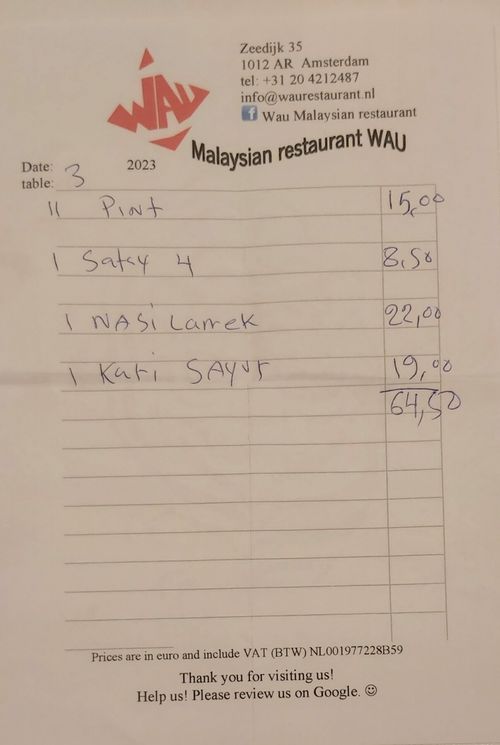 WAU
Zeedijk 35
1012 AR Amsterdam
tel: +31 20 4212487
info@waurestaurant.nl
f Wau Malaysian restaurant
Malaysian restaurant WAU
Date: 2023
table: 3
11 Pint 15,00
1 Satay 4 8,50
1 NASi Lamek 22,00
1 Kari SAYur 19,00
64,50
Prices are in euro and include VAT (BTW) NL001977228B59
Thank you for visiting us!
Help us! Please review us on Google. ☺